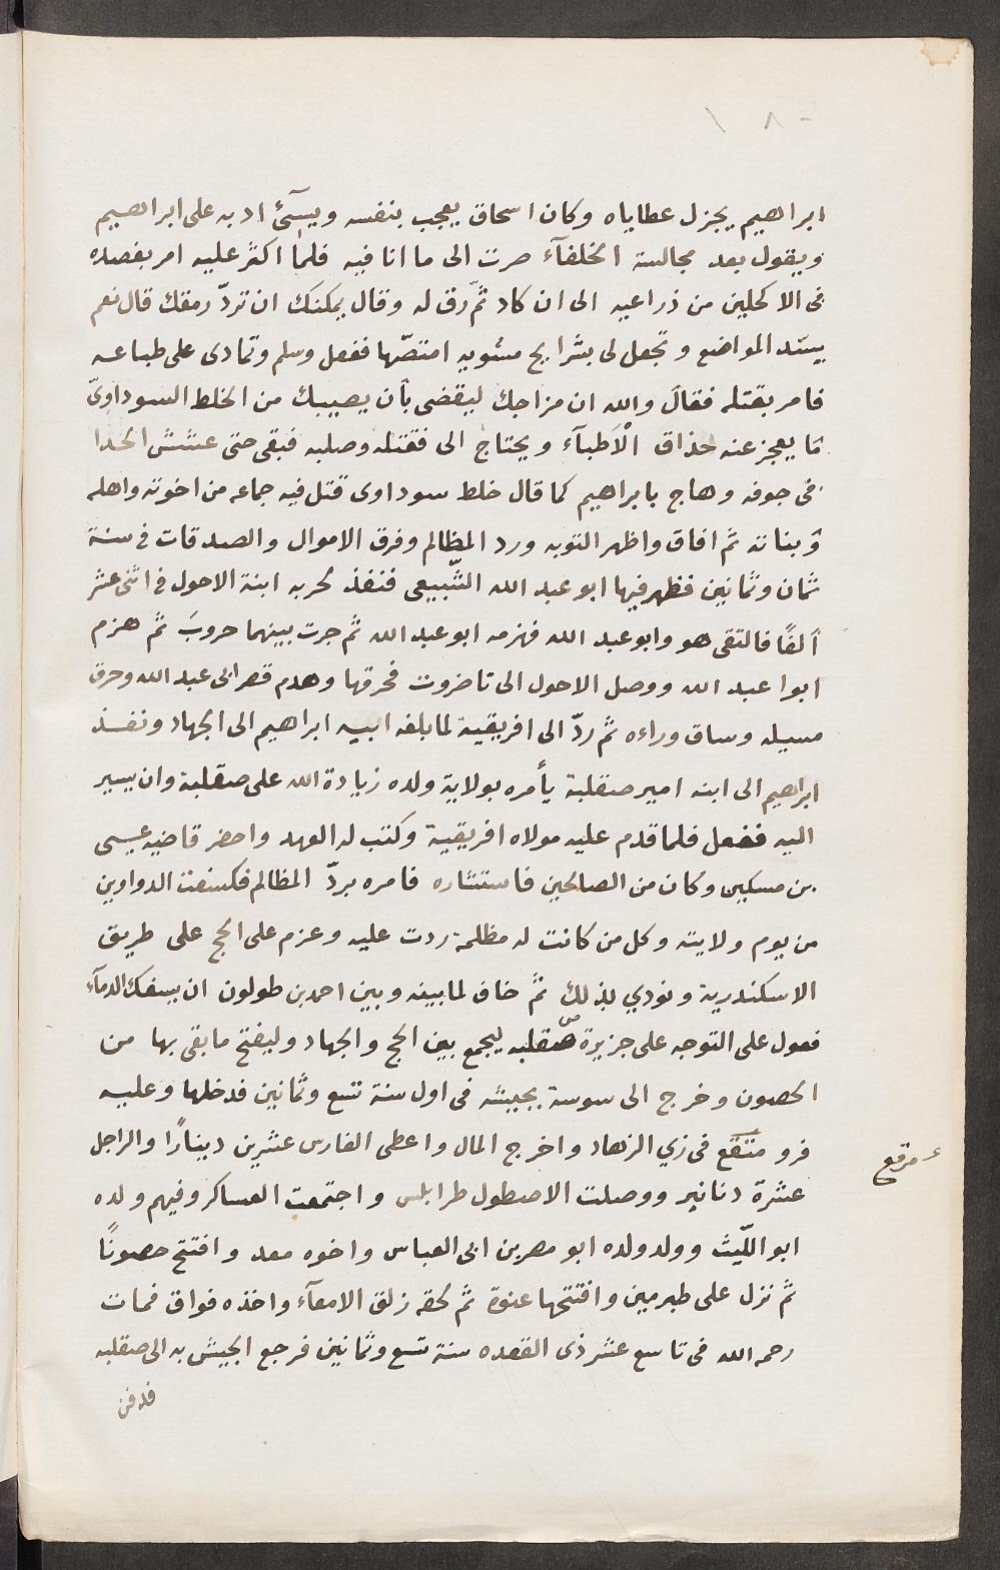 ابراهيم يجزل عطاياه وكان اسحاق يعجب بنفسه ويسئ ادبه على ابراهيم
ويقول بعد مجالسة الخلفآء صرت الى ما انا فيه فلما اكثر عليه امر بفصده
فى الاكحلين من ذراعيه الى ان كاد ثم رق له وقال يمكنك ان تردّ رمقك قال نعم
يسّد المواضع وتجعل لى بشرايح مشويه امتصّها ففعل وسلم وتمادى على طباعه
فامر بقتله فقال والله ان مزاجك ليقضى بأن يصيبك من الخلط السوداوىّ
ما يعجز عنه حذاق الأطبآء ويحتاج الى فقتله وصلبه فبقى حتى عشش الحدا
فى جوفه وهاج بابراهيم كما قال خلط سوداوى قتل فيه جماعه من اخوته واهله
وبناته ثم افاق واظهر التوبه ورد المظالم وفرق الاموال والصدقات فى سنة
ثمان وثمانين فظهر فيها ابو عبد الله الشّيعى فنفذ لحربه ابنة الاحول فى اثنى عشر
ألفًا فالتقى هو وابو عبد الله فهزمه ابو عبد الله ثم جرت بينهما حروبَ ثم هزم
ابوا عبد الله ووصل الاحول الى تاضروت فحرقها وهدم قصر ابى عبد الله وحرق
مسيله وساق وراءه ثم ردّ الى افريقية لما بلغه ابيه ابراهيم الى الجهاد ونفسذ
ابراهيم الى ابنه امير صقلبة يأمره بولاية ولده زيادة الله على صقلبة وان يسير
اليه ففعل فلما قدم عليه مولاه افريقية وكتب له العهد واحضر قاضيه عيسى
بن مسكين وكان من الصالحين فاستشاره فامره بردّ المظالم فكشفت الدواوين
من يوم ولايته وكل من كانت له مظلمة ردت عليه وعزم على الحج على طريق
الاسكندرية ونودي بذلك ثم خاف لما بينه وبين احمد بن طولون ان يسفك الدمآء
فعول على التوجه على جزيرة صقلبه ليجمع بين الحج والجهاد وليفتح ما بقى بها من
الحصون وخرج الى سوسة بجيشه فى اول سنة تسع وثمانين فدخلها وعليه
فرو متقع فى زي الزهاد واخرج المال واعطى الفارس عشرين دينارًا والراجل
مرقع
عشرة دنانير ووصلت الاصطول طرابلس واجتمعت العساكر وفيهم ولده
ابو اللّيث وولد ولده ابو مصر بن ابى العباس واخوه معد وافتتح حصونًا
ثم نزل على طبرمين وافتتحها عنوة ثم لحقه زلق الامعآء واخذه فواق فمات
رحمه الله فى تاسع عشر ذى القعده سنة تسع وثمانين فرجع الجيش به الى صقلبه
فدفن